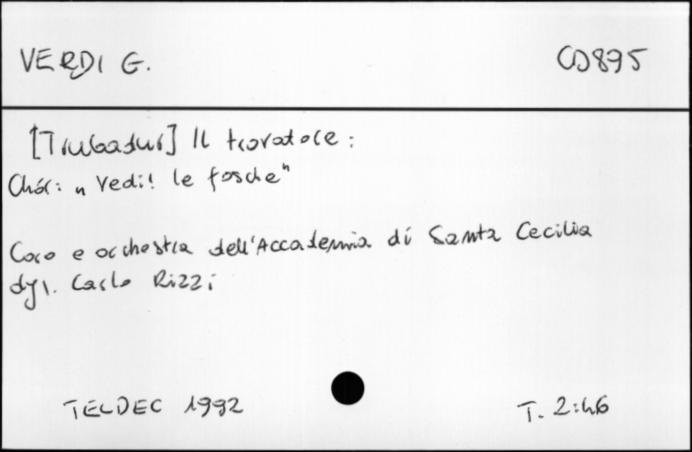 VERDI G.
CD895
[Trubadur] Il trovatore:
Chór: „Vedi! le fosche"
Coro e orchestra dell'Accademia di Santa Cecilia
dyr. Carlo Rizzi
TELDEC 1992
T. 2:46